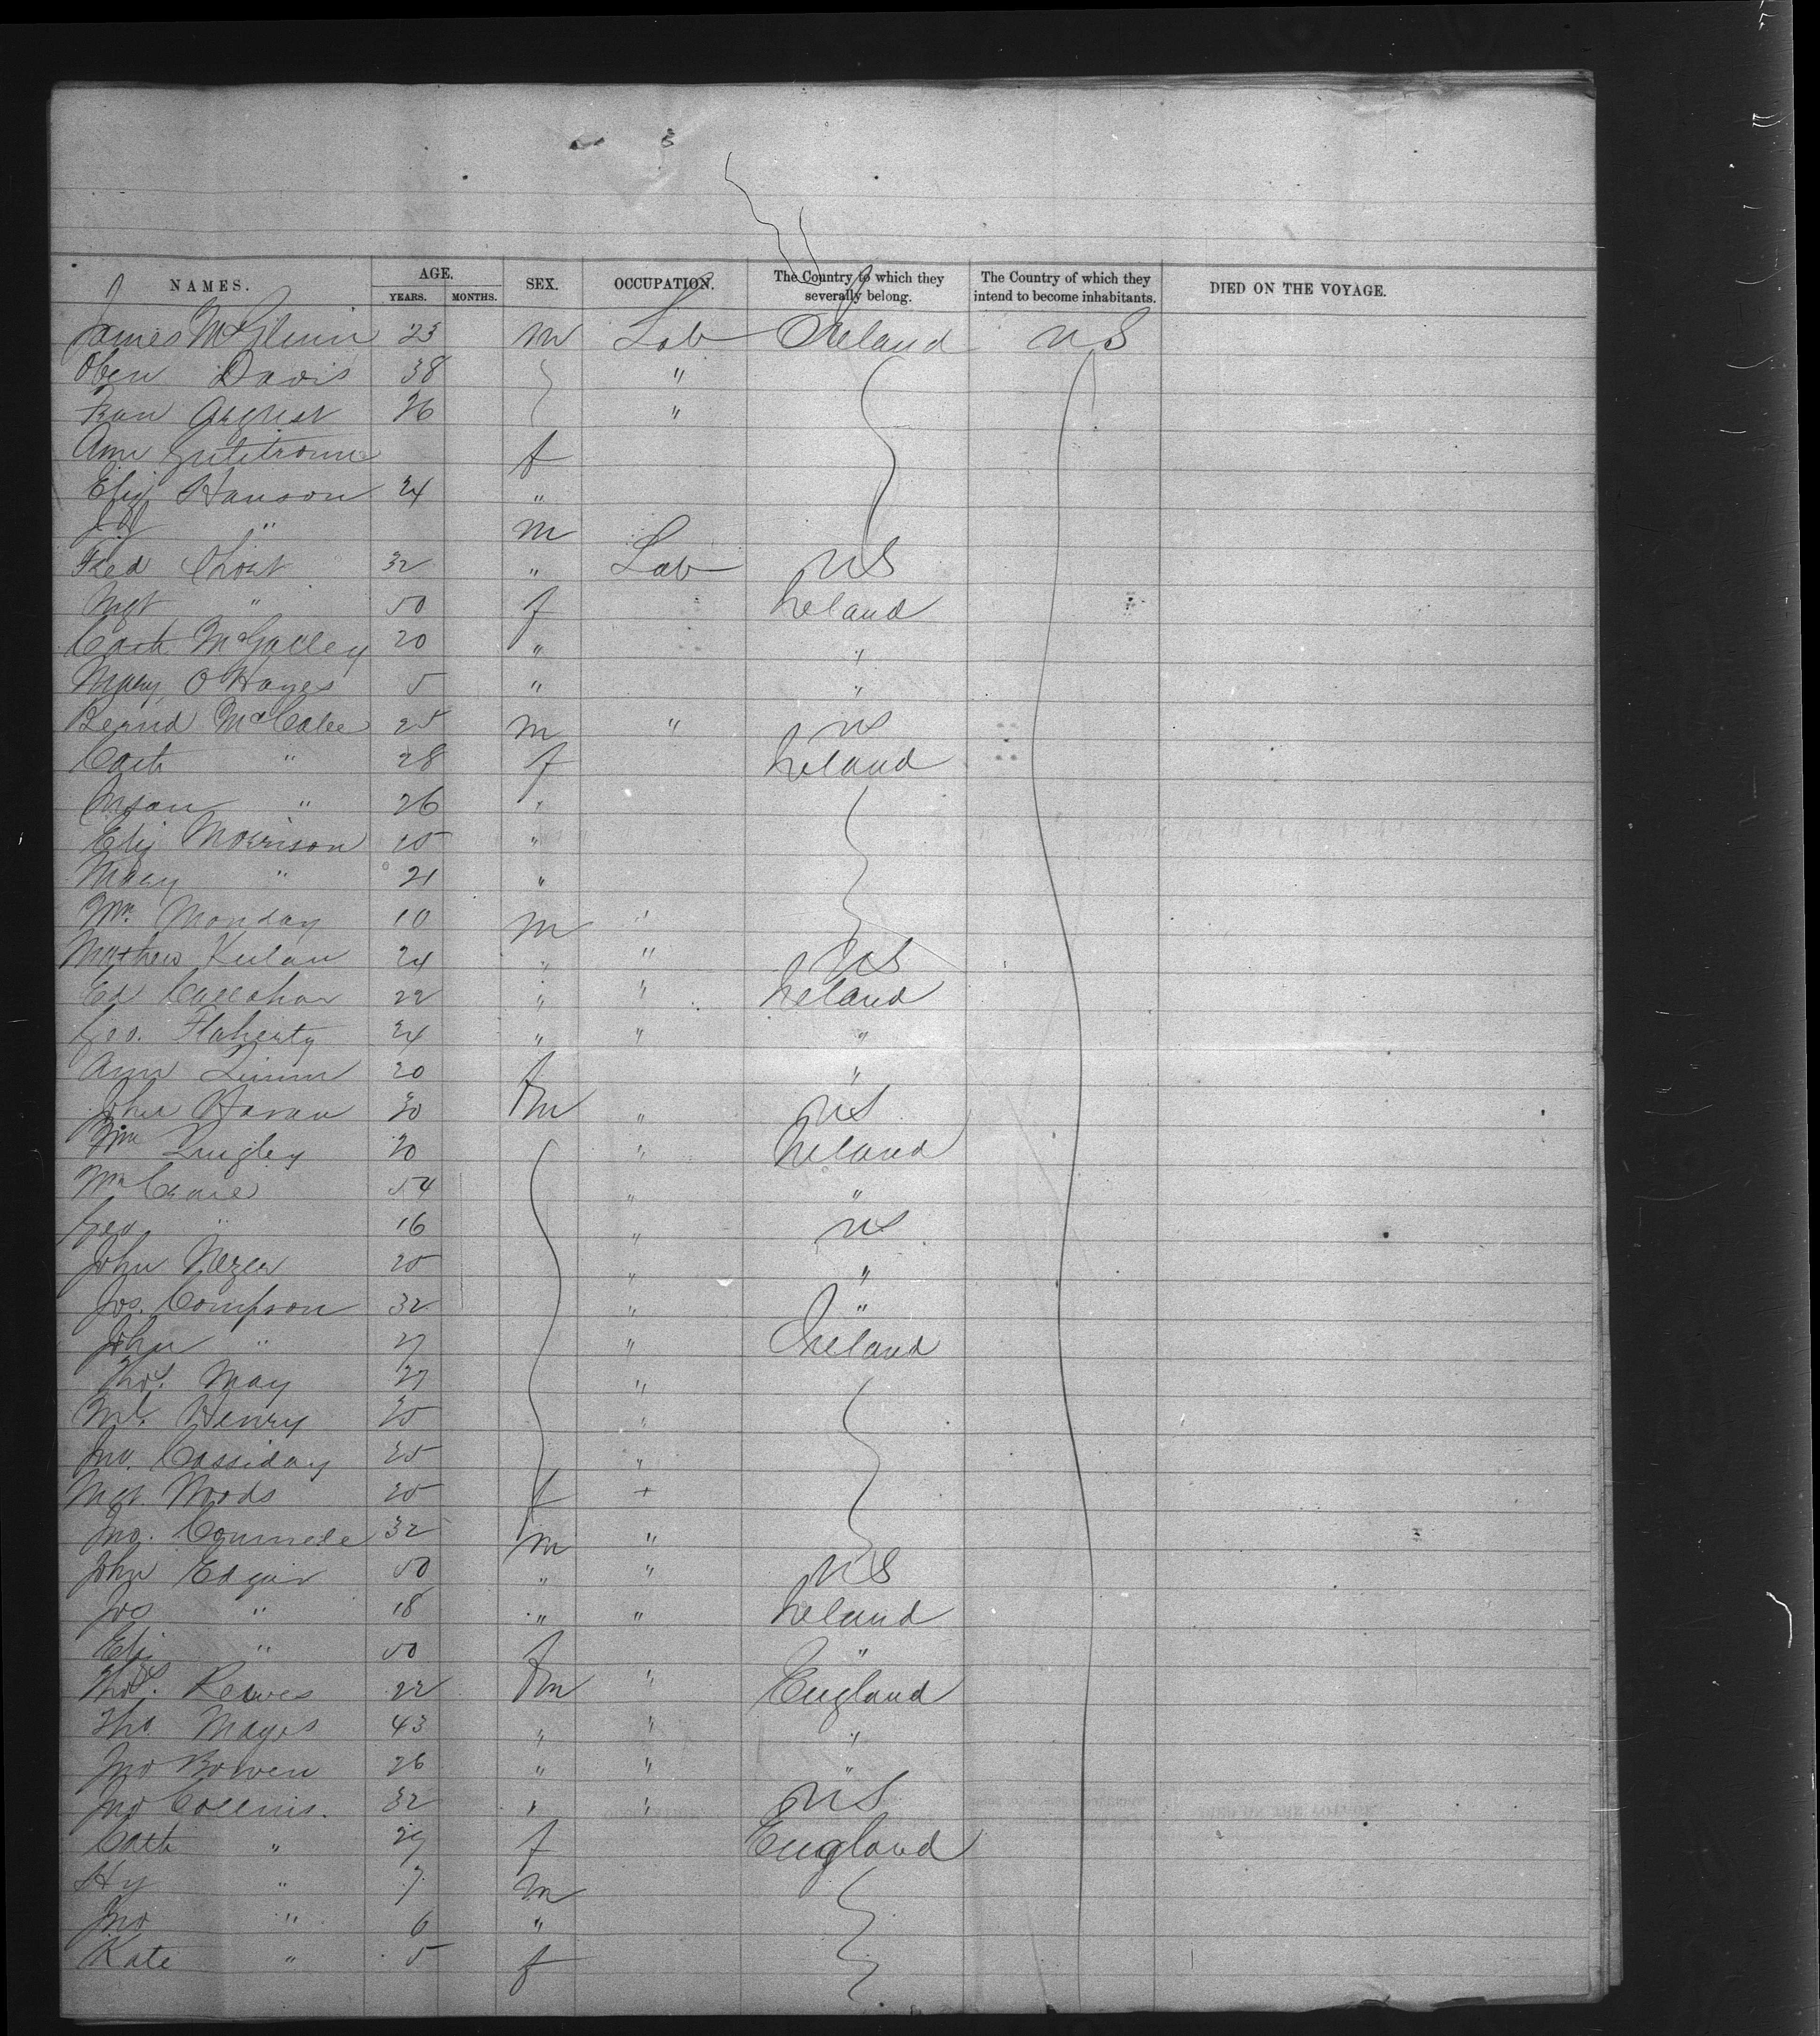 NAMES. AGE. SEX. OCCUPATION. The Country to which they severally belong. The Country of which they intend to become inhabitants. DIED ON THE VOYAGE.
YEARS. MONTHS.
James McGlinn 23 m Lab Ireland US
Oben Davis 38 "
Fran August 26 "
Ann f
Eliz Hanson 24 "
" m
Fred Chost 32 " Lab US
Mgt " 50 f Ireland
Cath McGalley 20 " "
Mary O'Hayes 5 " "
Bernd McCabe 25 m " US
Cath " 28 f Ireland
Susan " 26 "
Eliz Morrison 15 "
Mary " 21 "
Wm. Monday 10 m "
Mathew Keelan 24 " " US
Ed Callahan 22 " " Ireland
Geo. Flaherty 24 " " "
Ann Quinn 20 f "
John Havan 30 m " US
Wm Quigley 20 " Ireland
Wm Crane 54 " "
Geo " 16 " US
John Nezer 25 " "
Jos. Compson 32 " "
John " 27 " Ireland
Thos. May 27 "
Ml. Henry 25 "
Jno. Cassiday 25 "
Mgt. Woods 25 f +
Jno. 32 m "
John Edgar 50 " " US
Jos " 18 " " Ireland
Eliz " 50 f "
Thos. Reeves 22 m " England
Tho Mayes 43 " " "
Jno Bowen 26 " " "
Jno Collins. 32 " " US
Cath " 29 f England
Hy " 7 m
Jno " 6 "
Kate " 5 f